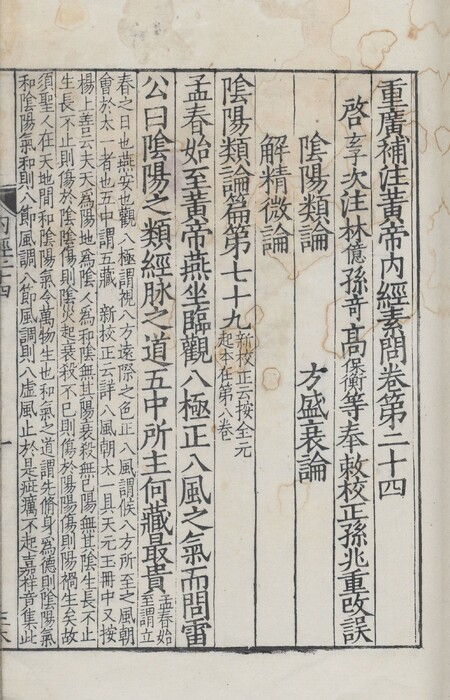 重廣補注黃帝內經素問卷第二十四
啓玄子次注林億孫奇高保衡等奉敕校正孫兆重改誤
陰陽類論 方盛衰論
解精微論
陰陽類論篇第七十九新校正云按全元起本在第八卷
孟春始至黃帝燕坐臨觀八極正八風之氣而問雷
公曰陰陽之類經脉之道五中所主何藏最貴孟春始至謂立
春之日也燕安也觀八極謂視八方遠際之色正八風謂候八方所至之風朝
會於太一者也五中謂五藏 新校正云詳八風朝太一具天元玉冊中又按
楊上善云夫天爲陽地爲陰人爲和陰無其陽衰殺無已陽無其陰生長不止
生長不止則傷於陰陰傷則陰災起衰殺不已則傷於陽陽傷則陽禍生矣故
須聖人在天地間和陰陽氣令萬物生也和氣之道謂先脩身爲德則陰陽氣
和陰陽氣和則八節風調八節風調則八虛風止於是疵癘不起嘉祥竟集此
內經二十四
一